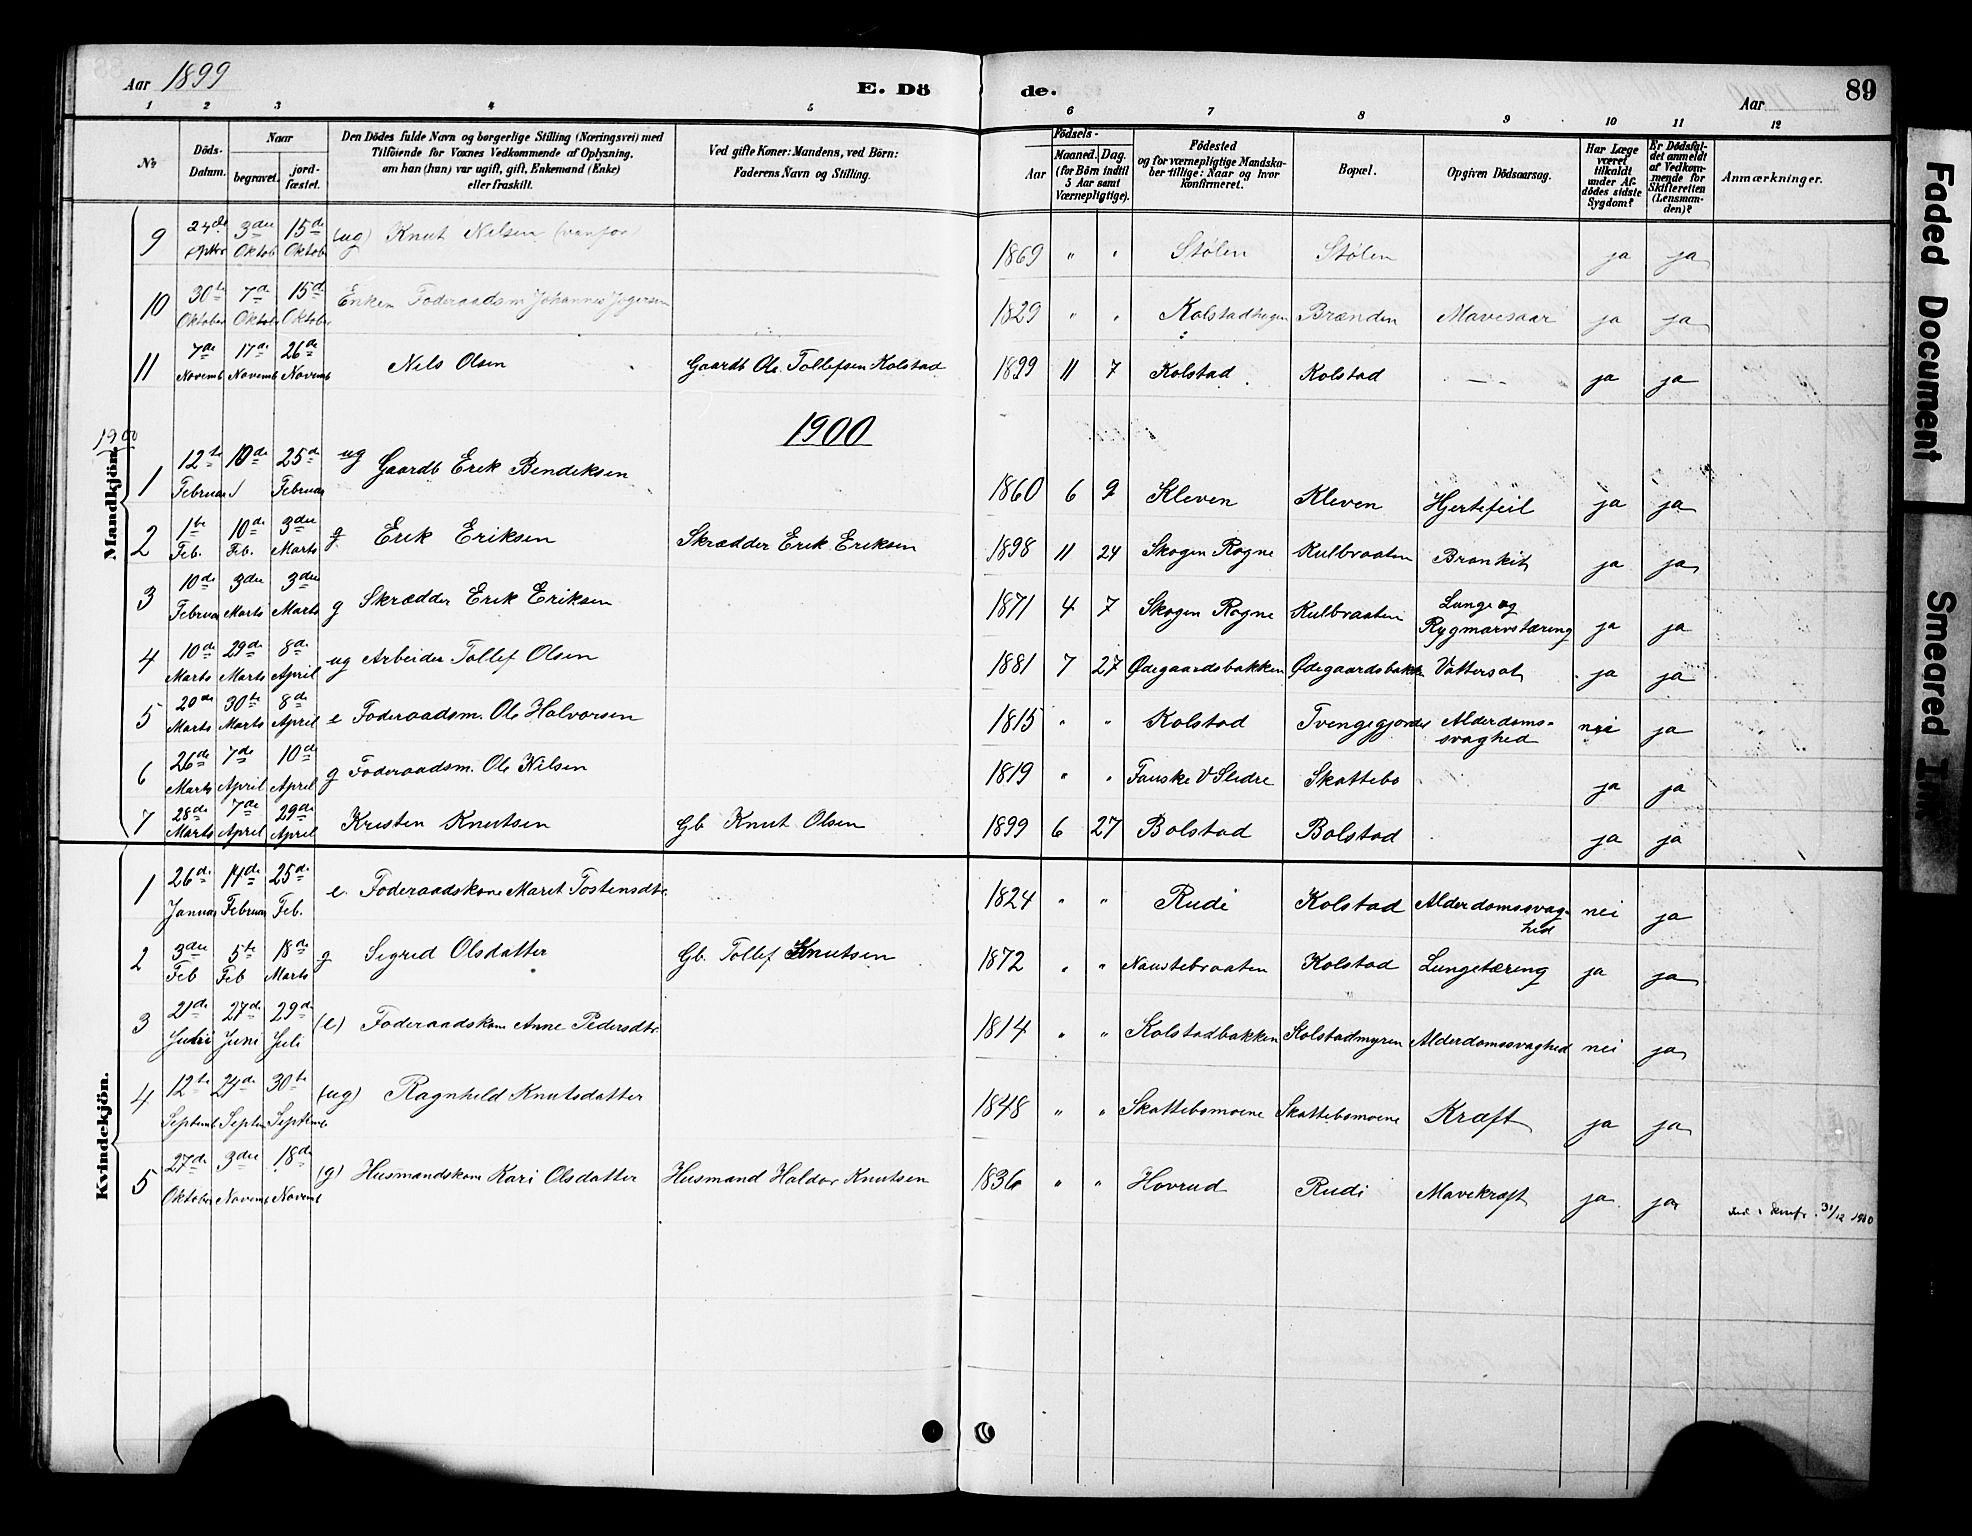 Aar 1899
E. Dö
de.
Aar
89
1 2 3 4 5 6 7 8 9 10 11 12
No
Döds-
Datum.
Naar
begravet.
jord-
fæstet.
Den Dödes fulde Navn og borgerlige Stilling (Næringsvei) med
Tilföiende for Voxnes Vedkommende af Oplysning,
om han (hun) var ugift, gift, Enkemand (Enke)
eller fraskilt.
Ved gifte Koner: Mandens, ved Börn:
Faderens Navn og Stilling.
Födsels-
Aar
Maaned. Dag.
(for Börn indtil
5 Aar samt
Værnepligtige).
Födested
og for værnepligtige Mandska-
ber tillige: Naar og hvor
konfirmeret.
Bopæl.
Opgiven Dödsaarsag.
Har Læge
været
tilkaldt
under Af-
dödes sidste
Sygdom?
Er Dödsfal-
det anmeldt
af Vedkom-
mende for
Skifteretten
(Lensman-
den)?
Anmærkninger.
9 24de 3die 15de (ug) Knut Nilsen (vanfør) 1869 " " Stølen Stølen ja ja
Oktob Oktob
10 30te 7de 15de Enkem Foderaadsm Johannes 1829 " " Brænden Mavesaar ja ja
Oktober Oktob Oktobr
11 7de 17de 26de Nels Olsen Gaardb Ole Tollefsen Kolstad 1899 11 7 Kolstad Kolstad ja ja
Novemb Novemb Novemb
1900
1900
Mandkjön.
1 12te 10de 25de ug Gaardb Erik Bendiksen 1860 6 9 Kleven Kleven Hjertefeil ja ja
Februar Februar
2 1te 10de 3die g Erik Eriksen Skrædder Erik Eriksen 1898 11 24 Skogen Rogne Kulbraaten Bronkit ja ja
Feb. Feb. Marts
3 10de 3die 3die g Skrædder Erik Eriksen 1871 4 7 Skogen Rogne Kulbraaten Lunge og
Februar Marts Marts Rygmarvstæring ja ja
4 10de 29de 8de ug Arbeider Tollef Olsen 1881 7 27 Ødegaardsbakken Ødegaardsbakk Vattersot ja ja
Marts Marts April
5 20de 30te 8de e Foderaadsm. Ole Halvorsen 1815 " " Kolstad Alderdoms-
Marts Marts April svaghed nei ja
6 26de 7de 10de g Foderaadsm. Ole Nilsen 1819 " " Fauske V Slidre Skattebo ja ja
Marts April April
7 28de 7de 29de Kristen Knutsen Gb. Knut Olsen 1899 6 27 Bolstad Bolstad ja ja
Marts April April
Kvindekjön.
1 26de 14de 25de e. Foderaadskone Marit Tostensdtr. 1824 " " Rudi Kolstad Alderdomssvag-
Januar Februar Feb. hed nei ja
2 3die 5te 18de g Sigrid Olsdatter Gb. Tollef Knutsen 1872 " " Naustebraaten Kolstad Lungetæring ja ja
Feb Feb Marts
3 21de 27de 29de (e) Foderaadskone Anne Pedersdtr. 1814 " " Kolstadbakken Kolstadmyren Alderdomssvaghed nei ja
Juni Juli
4 12te 24de 30te (ug) Ragnhild Knutsdatter 1848 " " Skattebomoene Skattebomoene Kræft ja ja
Septemb Septm Septemb
5 27de 3die 18de (g) Husmandskone Kari Olsdatter Husmand Haldor Knutsen 1836 " " Hovrud Rudi Mavekræft ja ja
Oktober Novemb Novemb
31/12 1900
Faded Document
Smeared Ink